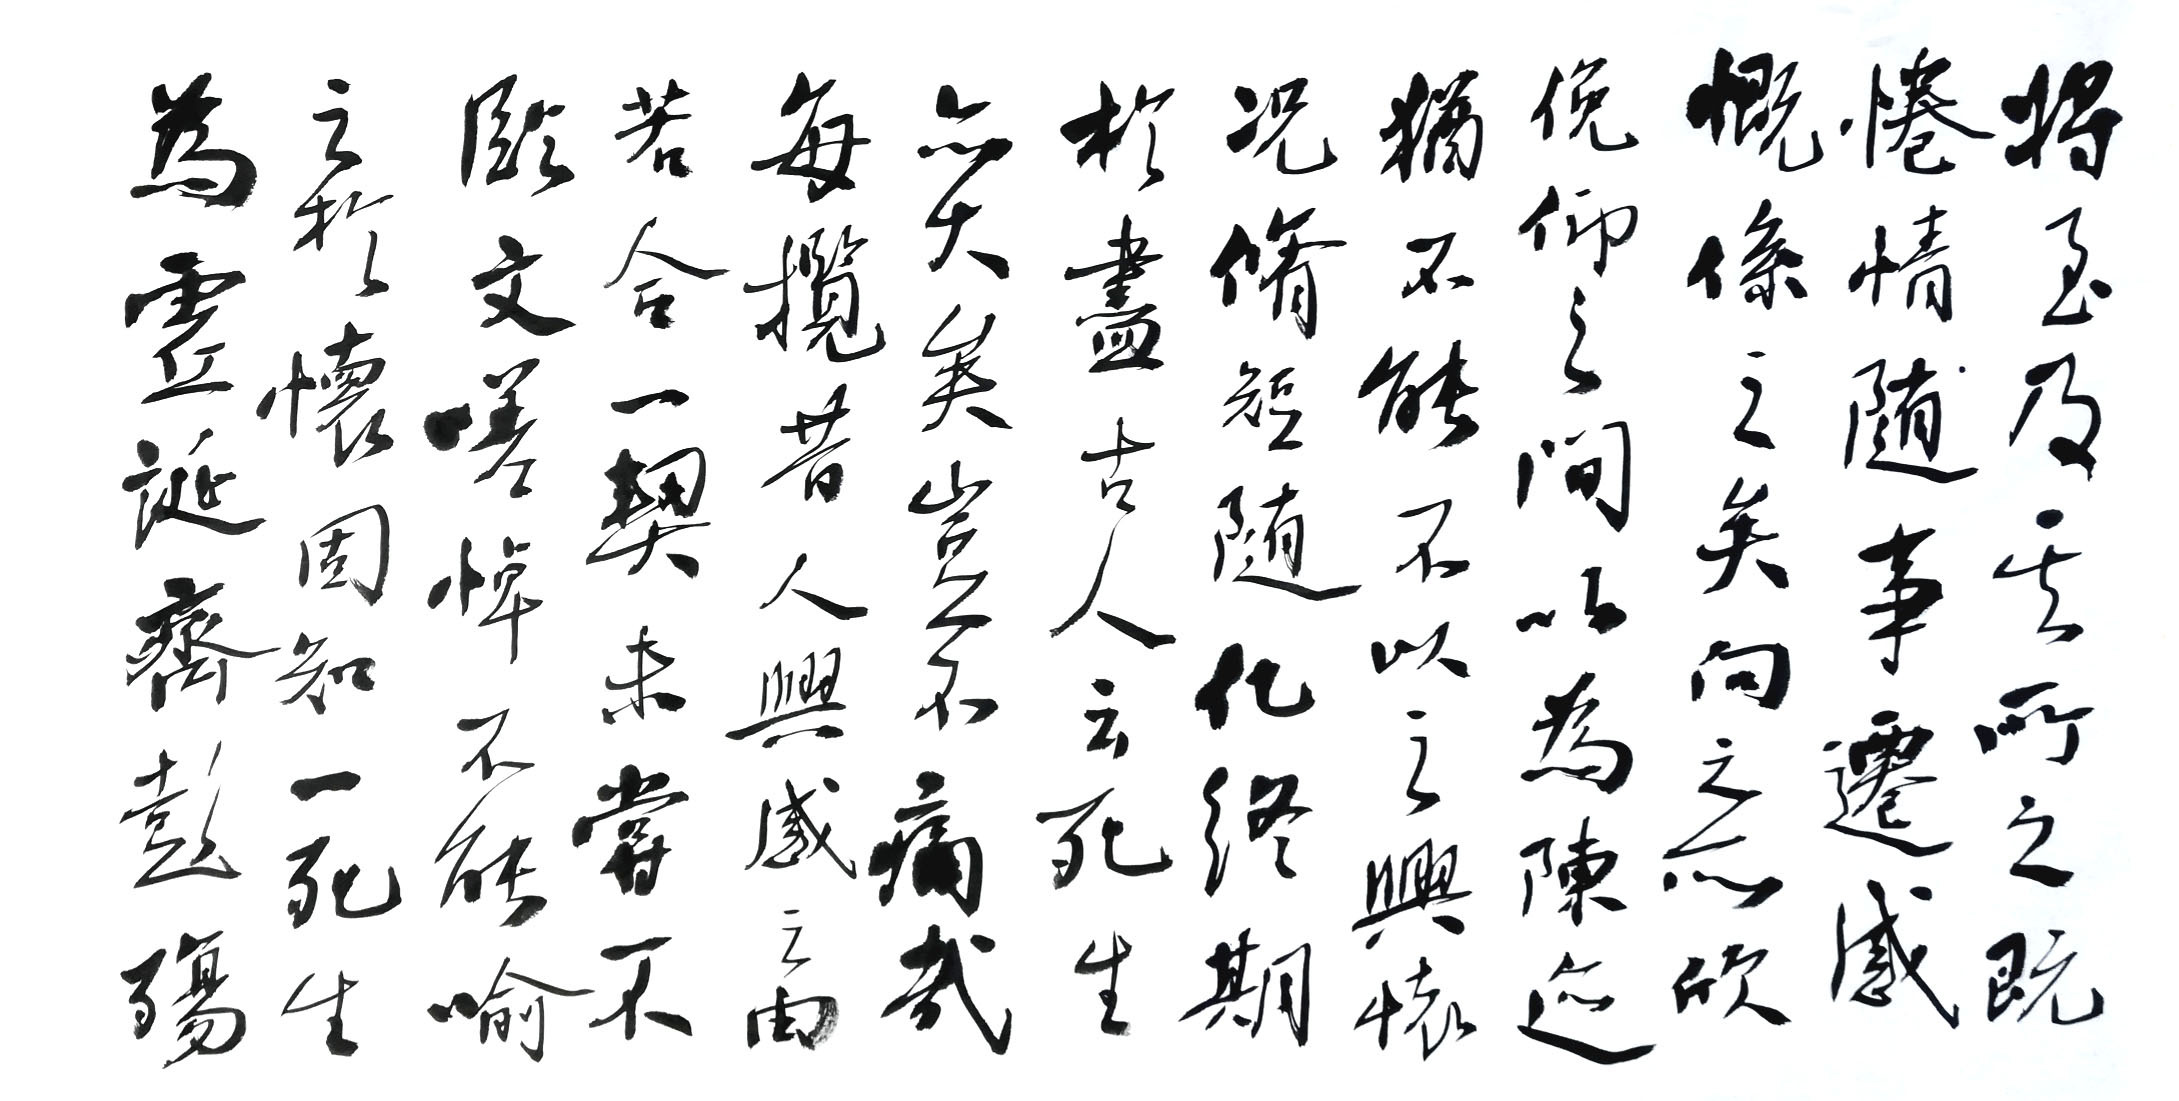 將至及其所之既
惓情随事遷感
慨係之矣向之所欣
俛仰之間以為陳迹
猶不能不以之興懷
况脩短随化終期
於盡古人云死生
亦大矣豈不痛哉
每攬昔人興感之由
若合一契未嘗不
臨文嗟悼不能喻
之於懷固知一死生
為虛誕齊彭殤